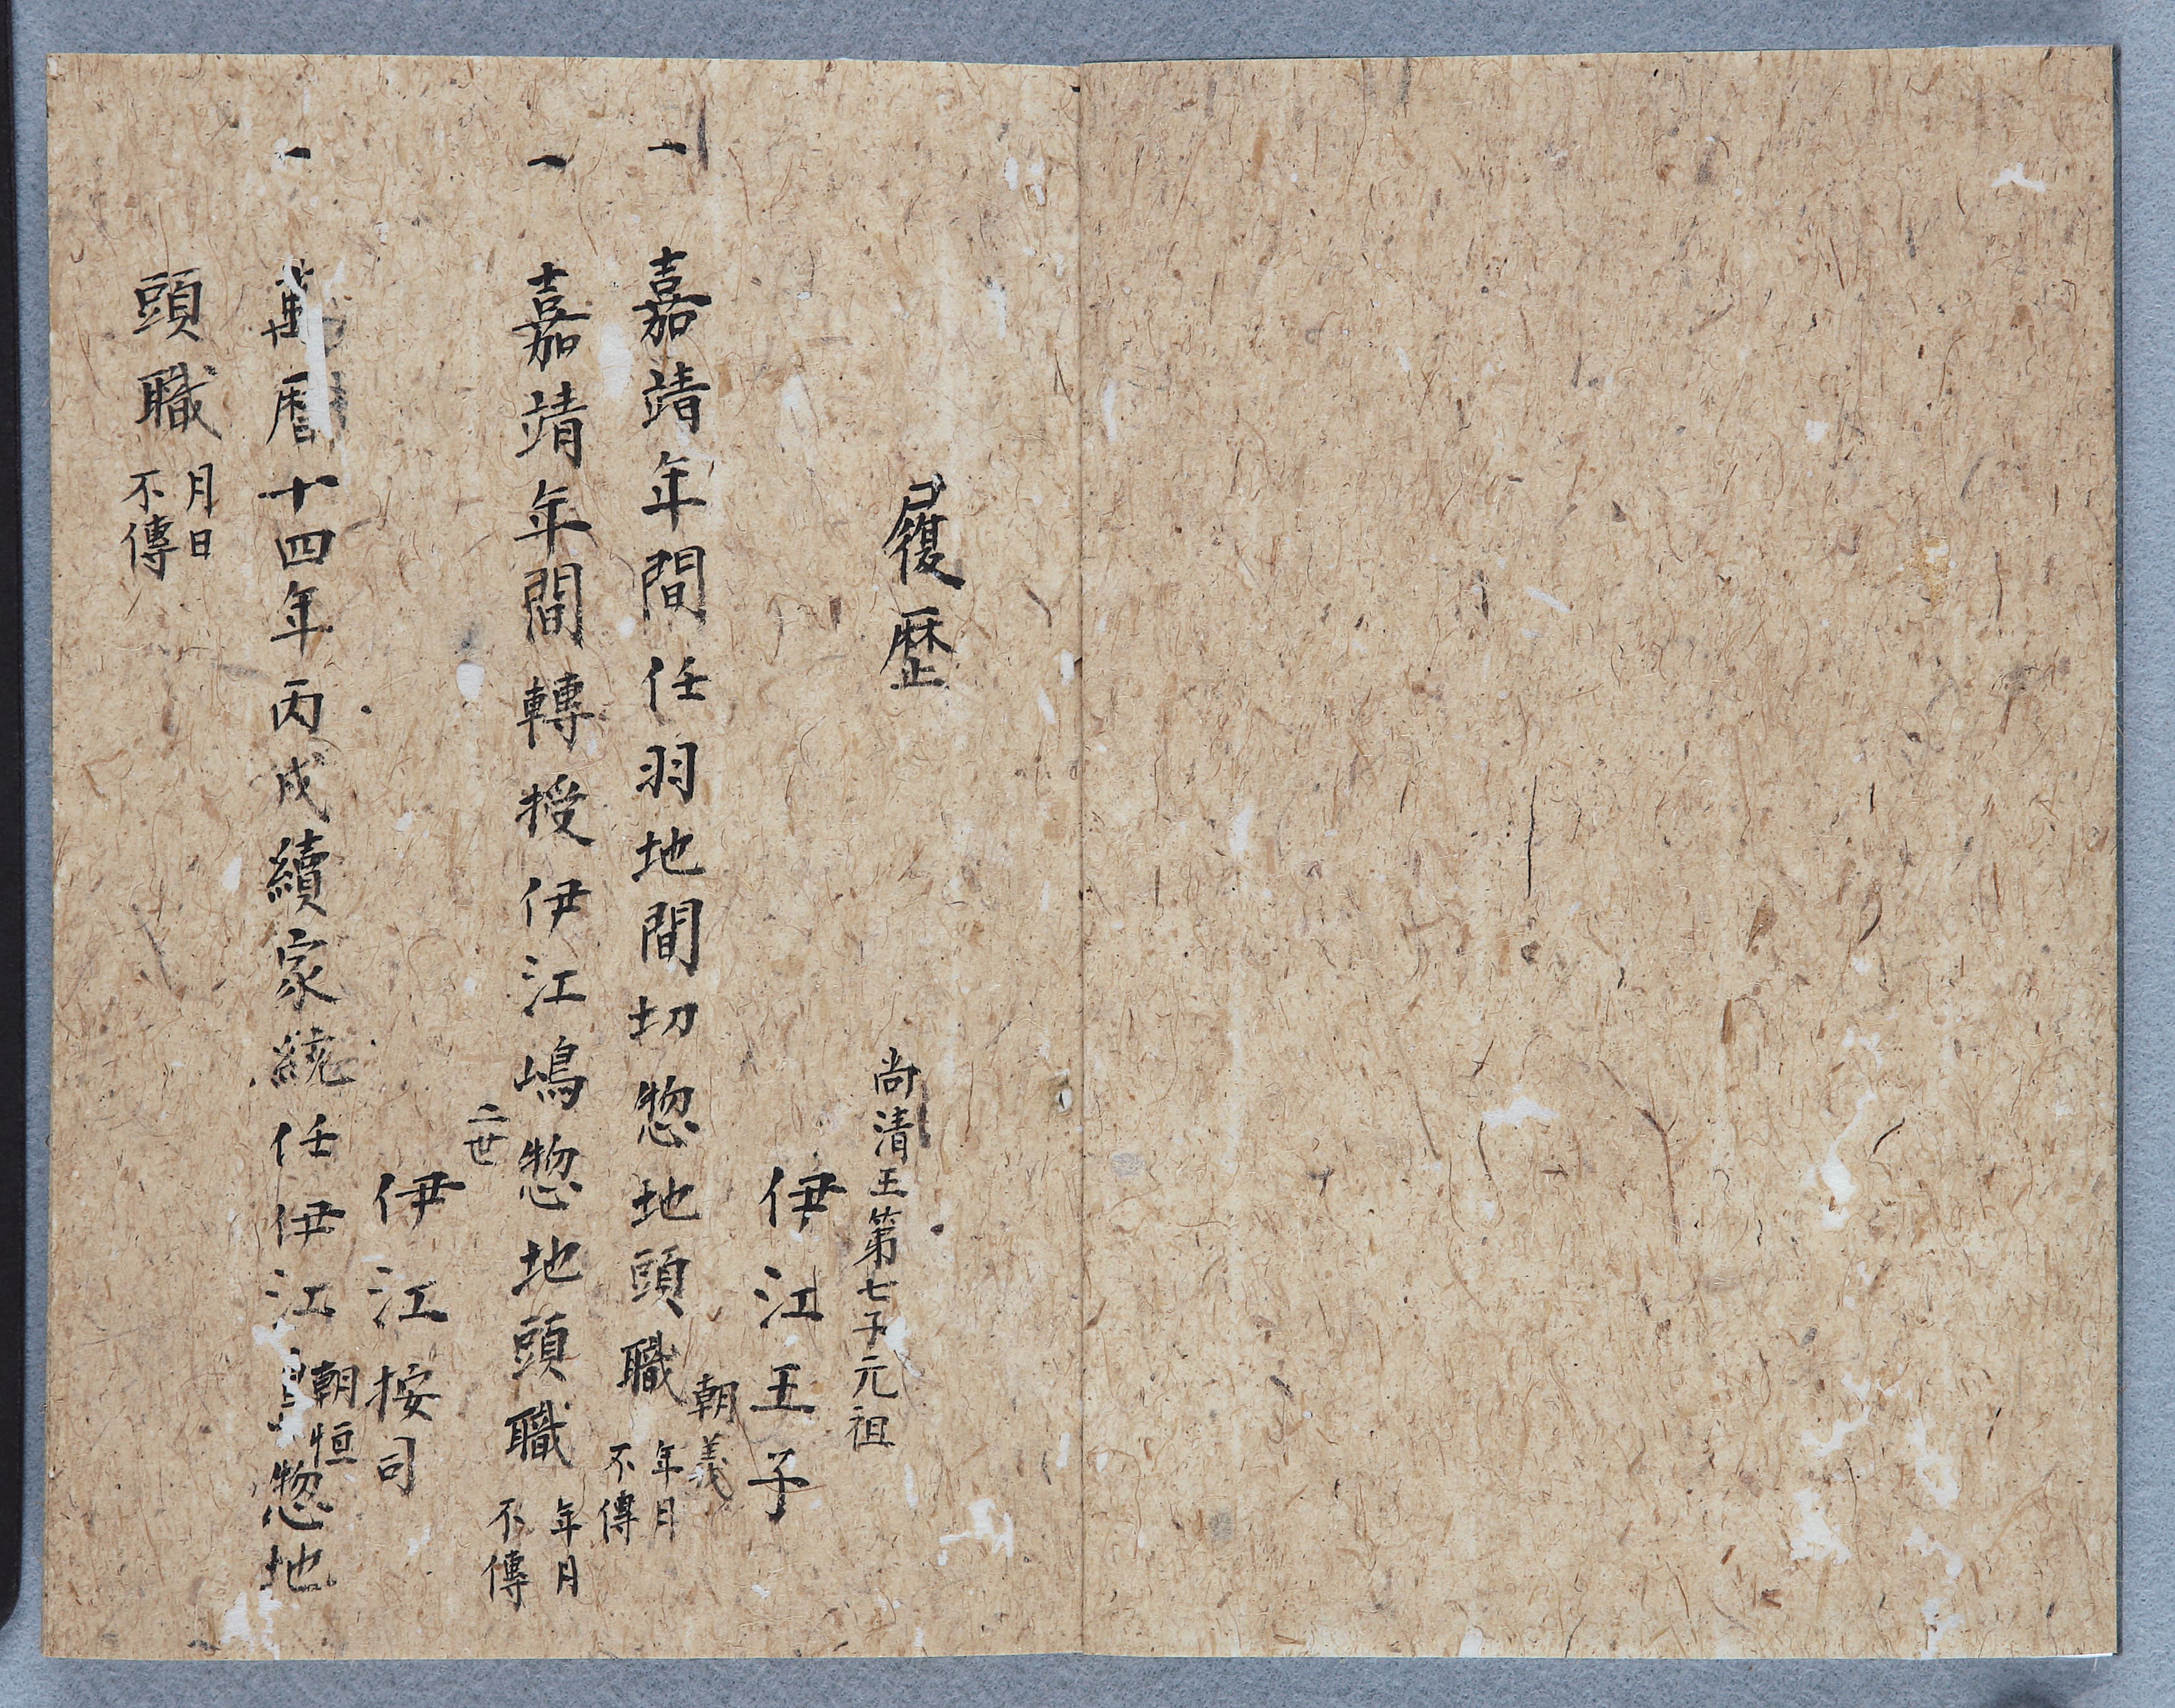 履歴
尚清王第七子元祖
伊江王子
朝義
一 嘉靖年間任羽地間切惣地頭職 年月不傳
一 嘉靖年間轉授伊江嶋惣地頭職 年月不傳
二世
伊江按司
朝恒
一 萬暦十四年丙戌續家統任伊江嶋惣地
頭職 月日不傳